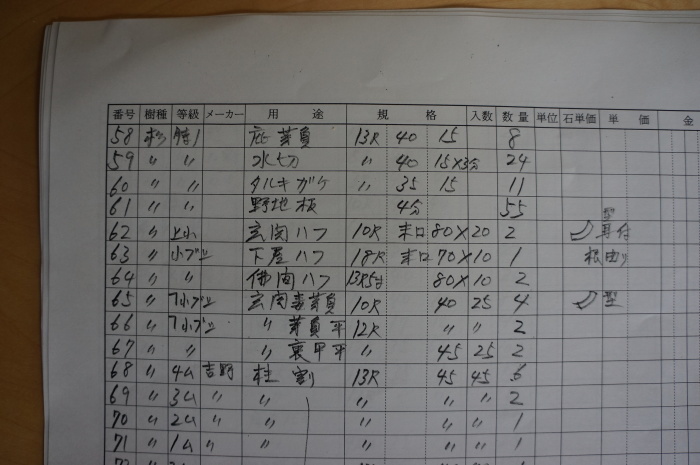 番号 樹種 等級 メーカー 用途 規格 入数 数量 単位 石単価 単価 金
58 杉 特1 広茅負 13R 40 15 8
59 〃 〃 水切 〃 40 15×3分 24
60 〃 〃 タルキガケ 〃 35 15 11
61 〃 〃 野地板 4分 55
62 〃 上小 玄関ハフ 10R 末口 80×20 2 型 耳付
63 〃 小ブシ 下屋ハフ 18R 末口 70×10 1 根曲り
64 〃 〃 佛間ハフ 13R5寸 80×10 2
65 〃 1小ブシ 玄関 茅負 10R 40 25 4 型
66 〃 1小ブシ 〃 茅負 平 12R 〃 〃 2
67 〃 〃 〃 裏甲 平 〃 45 25 2
68 〃 4ム 吉野 柱割 13R 45 45 6
69 〃 3ム 〃 〃 〃 〃 〃 2
70 〃 2ム 〃 〃 〃 〃 〃 1
71 〃 1ム 〃 〃 〃 〃 〃 1